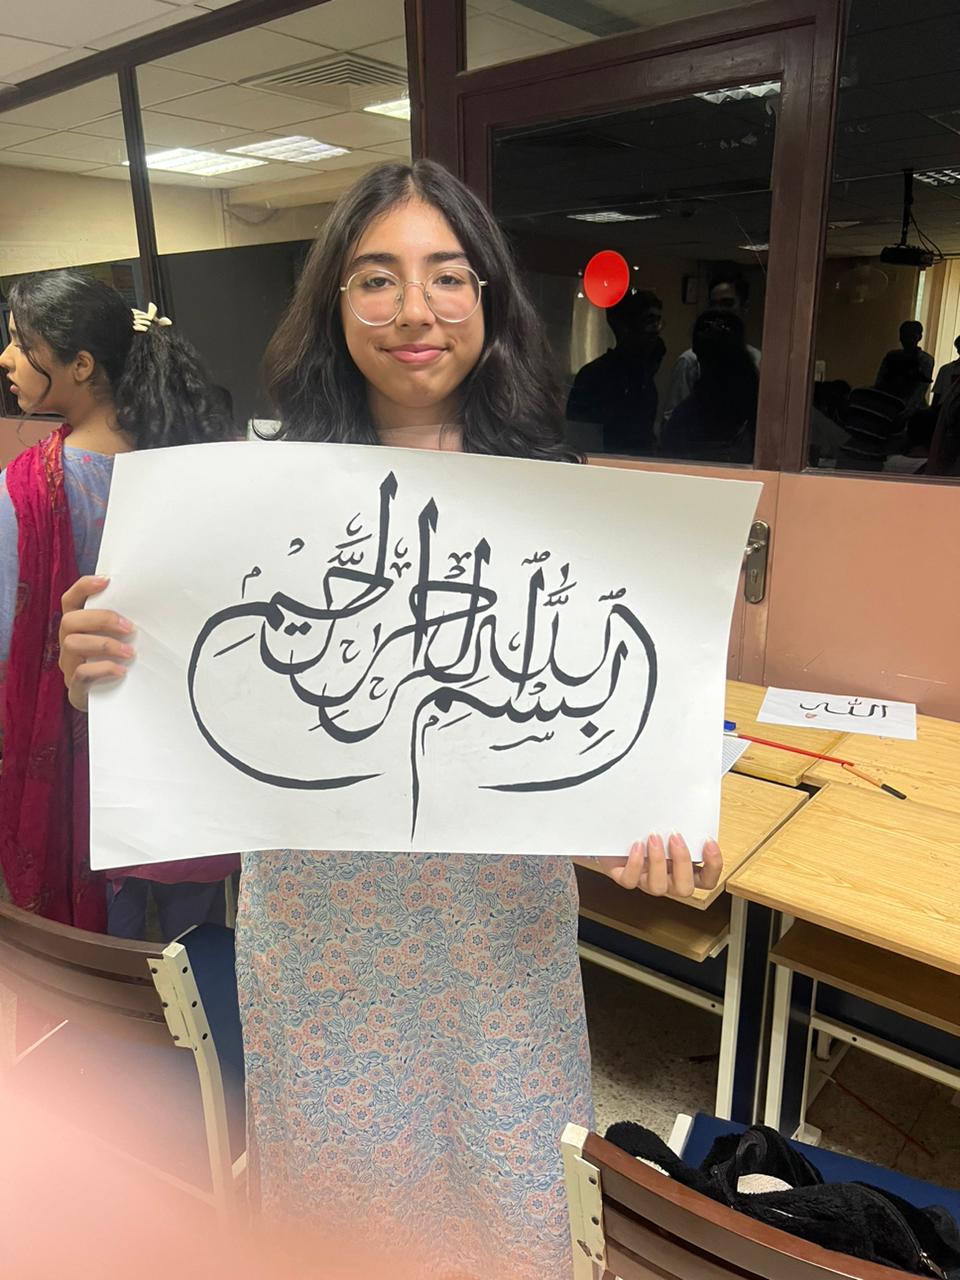 بِسْمِ اللّٰهِ الرَّحْمٰنِ الرَّحِيْمِ
اللّٰه